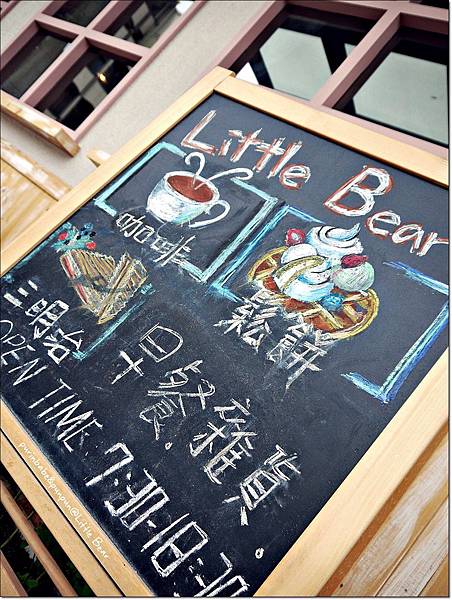 Little Bear
咖啡
鬆餅
三明治
早餐.雜貨
OPEN TIME. 7:30-18:30
purinbabe&punpun@Little Bear